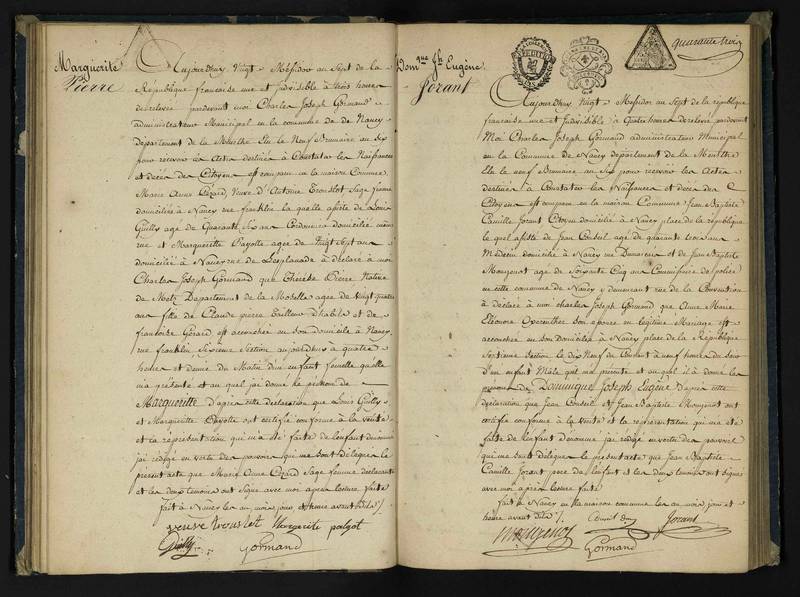 Marguerite
Pierre
Aujourdhuy Vingt Messidor an Sept de la
République francaise une et indivisible à trois heures
de relevée pardevant moi Charles Joseph Gormand
administrateur Municipal en la commune de Nancy
departement de la Meurthe Elu le Neuf Brumaire an six
pour recevoir les Actes destinés à Constater les Naissances
et décès des Citoyens est comparu en la maison Commune
Marie Anne Cézard, Veuve d'Antoine Trouslot Sage femme
domiciliée à Nancy rue franklin la quelle assistée de Louis
Guilly agé de Quarante Six ans Cordonnier domicilié même
rue et Marguerite Payotte agée de Vingt Sept ans
domiciliée à Nancy rue de L'esplanade à déclaré à moi
Charles Joseph Gormand que Thérèse Pierre Native
de Metz Departement de la Moselle agée de vingt quatre
ans fille de Claude pierre tailleur d'habits et de
francoise Gérard est accouchée en son domicile à Nancy
rue franklin Sixieme Section aujourdhuy à quatre
heures et demie du Matin d'un enfant femelle qu'elle
m'a présenté et au quel j'ai donné le prénom de
Marguerite d'après cette déclaration que Louis Guilly
et Marguerite Payotte ont certifié conforme à la vérité
et la représentation qui m'a été faite de l'enfant dénommé
j'ai rédigé en vertu des pouvoirs qui me sont délégués le
present acte que Marie Anne Cézard Sage femme déclarante
et les deux temoins ont Signé avec moi après lecture faite
fait à Nancy les an mois jour et heure avant dits
veuve trouslot Marguerite paigot
Guilly Gormand
quarante trois
Domque Jh Eugène
Jorant
Aujourdhuy Vingt Messidor an Sept de la république
francaise une et Indivisible à Quatre heures de relevé pardevant
Moi Charles Joseph Gormand administrateur Municipal
en la Commune de Nancy departement de la Meurthe
Elu le neuf Brumaire an Six pour recevoir les Actes
destinés à Constater les Naissances et décès des
Citoyens est comparu en la maison Commune Jean Baptiste
Camille Jorant Citoyen domicilié à Nancy place de la république
le quel assisté de Jean Conseil agé de quarante trois ans
Médecin domicilié à Nancy rue et de Jean Baptiste
Mougenot agé de Soixante Cinq ans Commissaire de police
en cette commune de Nancy y demeurant rue de la Convention
à déclaré à moi charles Joseph Gormand que Anne Marie
Eléonore son épouse en légitime Mariage est
accouchée en son domicile à Nancy place de la République
Septieme Section le dix Neuf du Courant à neuf heures du Soir
d'un enfant Mâle qui m'a présenté et au quel il à donné les
prénoms de Dominique Joseph Eugène d'après cette
déclaration que Jean Conseil et Jean Baptiste Mougenot ont
certifié conforme à la vérité et la représentation qui m'a été
faite de l'enfant dénommé j'ai rédigé en vertu des pouvoirs
qui me sont délégués le présent acte que Jean Baptiste
Camille Jorant pere de l'enfant et les deux temoins ont signé
avec moi après lecture faite
fait à Nancy en la maison commune les an mois jour et
heure avant dits
Mougenot Conseil Jorant
Gormand